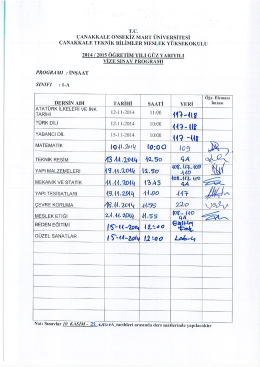 T.C.
ÇANAKKALE ONSEKİZ MART ÜNİVERSİTESİ
ÇANAKKALE TEKNİK BİLİMLER MESLEK YÜKSEKOKULU
2014 / 2015 ÖĞRETİM YILI GÜZ YARIYILI
VİZE SINAV PROGRAMI
PROGRAMI : İNŞAAT
SINIFI : 1-A
DERSİN ADI TARİHİ SAATİ YERİ Öğr. Elemanı İmzası
ATATÜRK İLKELERİ VE İNK. TARİHİ 12-11-2014 11:00 117-118
TÜRK DİLİ 12-11-2014 10:00 117-118
YABANCI DİL 15-11-2014 10:00 117-118
MATEMATİK 10.11.2014 10:00 109
TEKNİK RESİM 13.11.2014 12.50 GA
YAPI MALZEMELERİ 19.11.2014 12.50 108-117-109 110
MEKANİK VE STATİK 11.11.2014 13.45 108-117-110 GA
YAPI TESİSATLARI 19.11.2014 11.00 117
ÇEVRE KORUMA 18.11.2014 11.55 220
MESLEK ETİĞİ 21.11.2014 11.55 108-110 GA
BEDEN EĞİTİMİ 15-11-2014 12:00
GÜZEL SANATLAR 15-11-2014 12:00
Not: Sınavlar 10 KASIM - 21 KASIM tarihleri arasında ders saatlerinde yapılacaktır